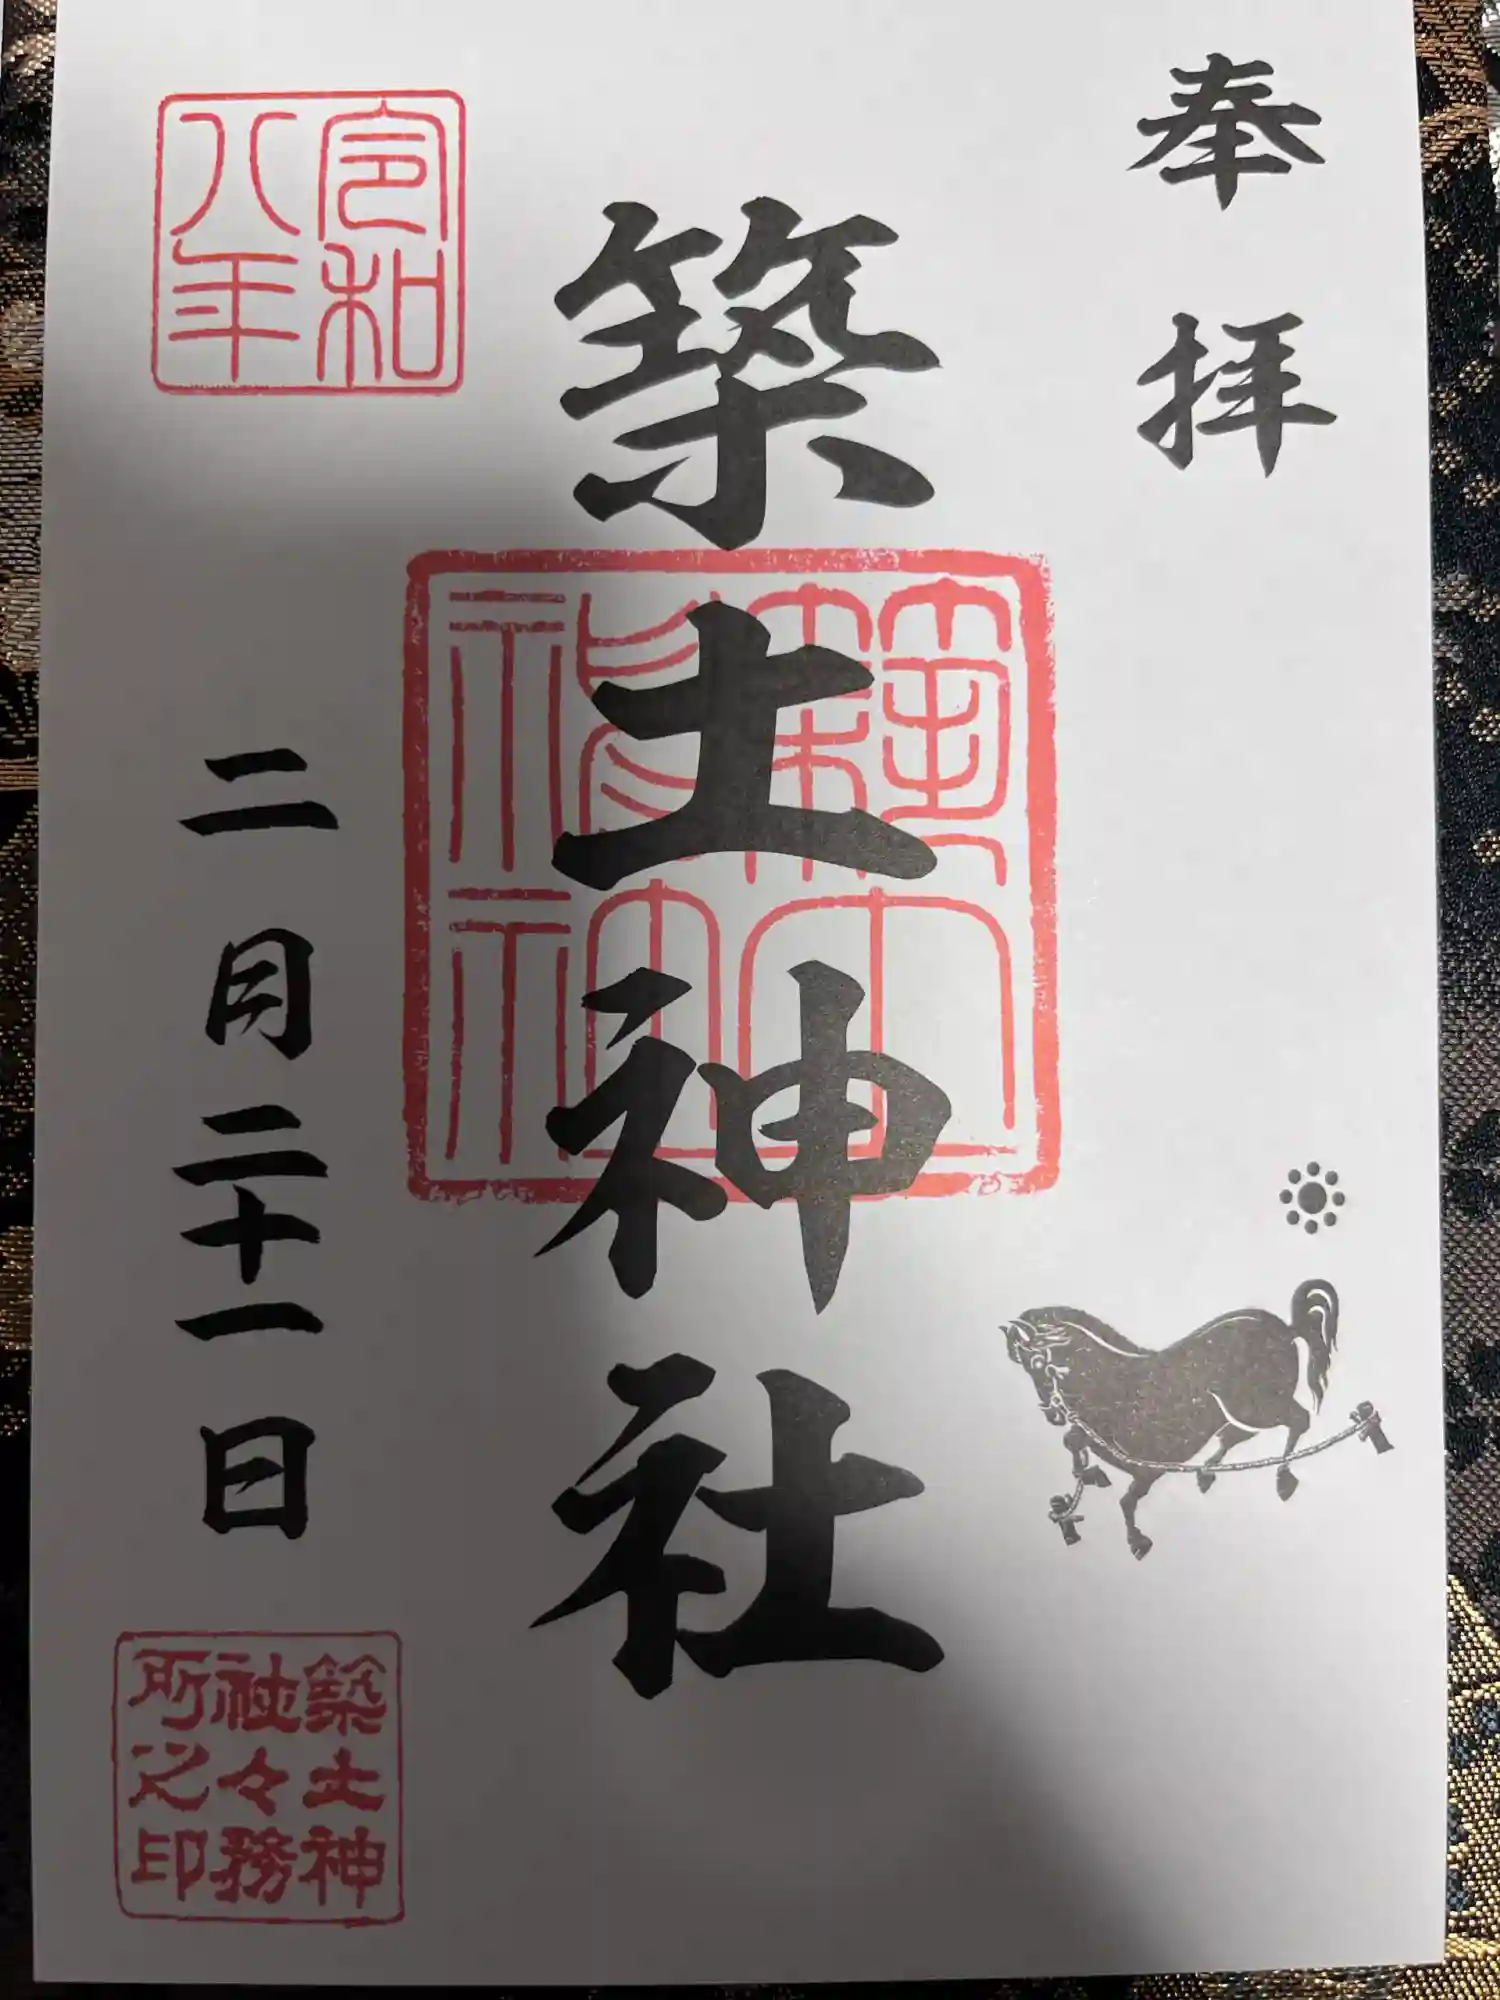 奉拝
築土神社
築土神社
令和八年
二月二十一日
築土神
社々務
所之印